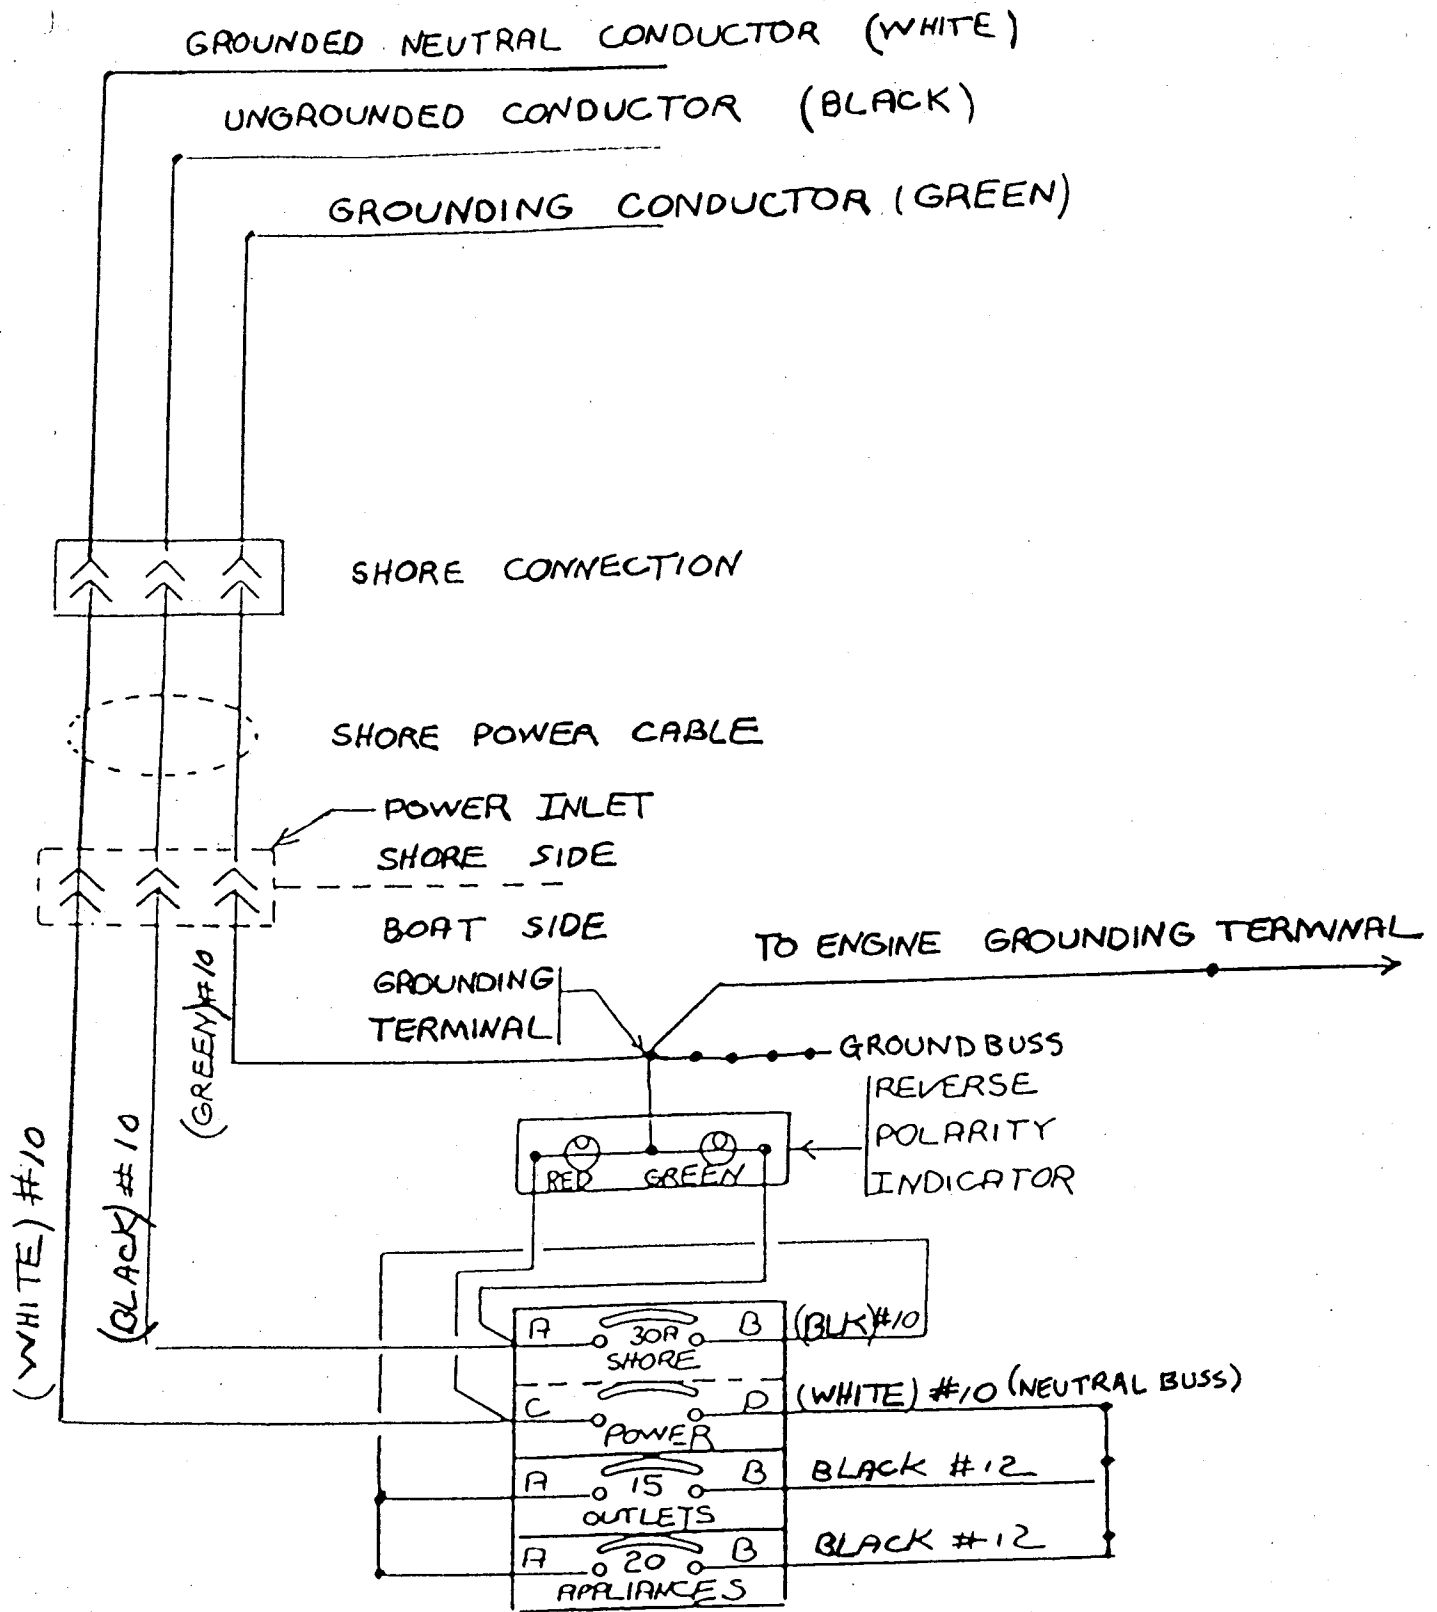 GROUNDED NEUTRAL CONDUCTOR (WHITE)
UNGROUNDED CONDUCTOR (BLACK)
GROUNDING CONDUCTOR (GREEN)
SHORE CONNECTION
SHORE POWER CABLE
POWER INLET
SHORE SIDE
BOAT SIDE
GROUNDING
TERMINAL
TO ENGINE GROUNDING TERMINAL
GROUND BUSS
REVERSE
POLARITY
INDICATOR
(GREEN) #10
(BLACK) #10
(WHITE) #10
RED GREEN
A 30A B (BLK) #10
SHORE
C D (WHITE) #10 (NEUTRAL BUSS)
POWER
A 15 B BLACK #12
OUTLETS
A 20 B BLACK #12
APPLIANCES